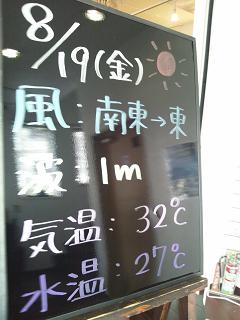 8/19(金)
風:南東→東
波:1m
気温:32℃
水温:27℃